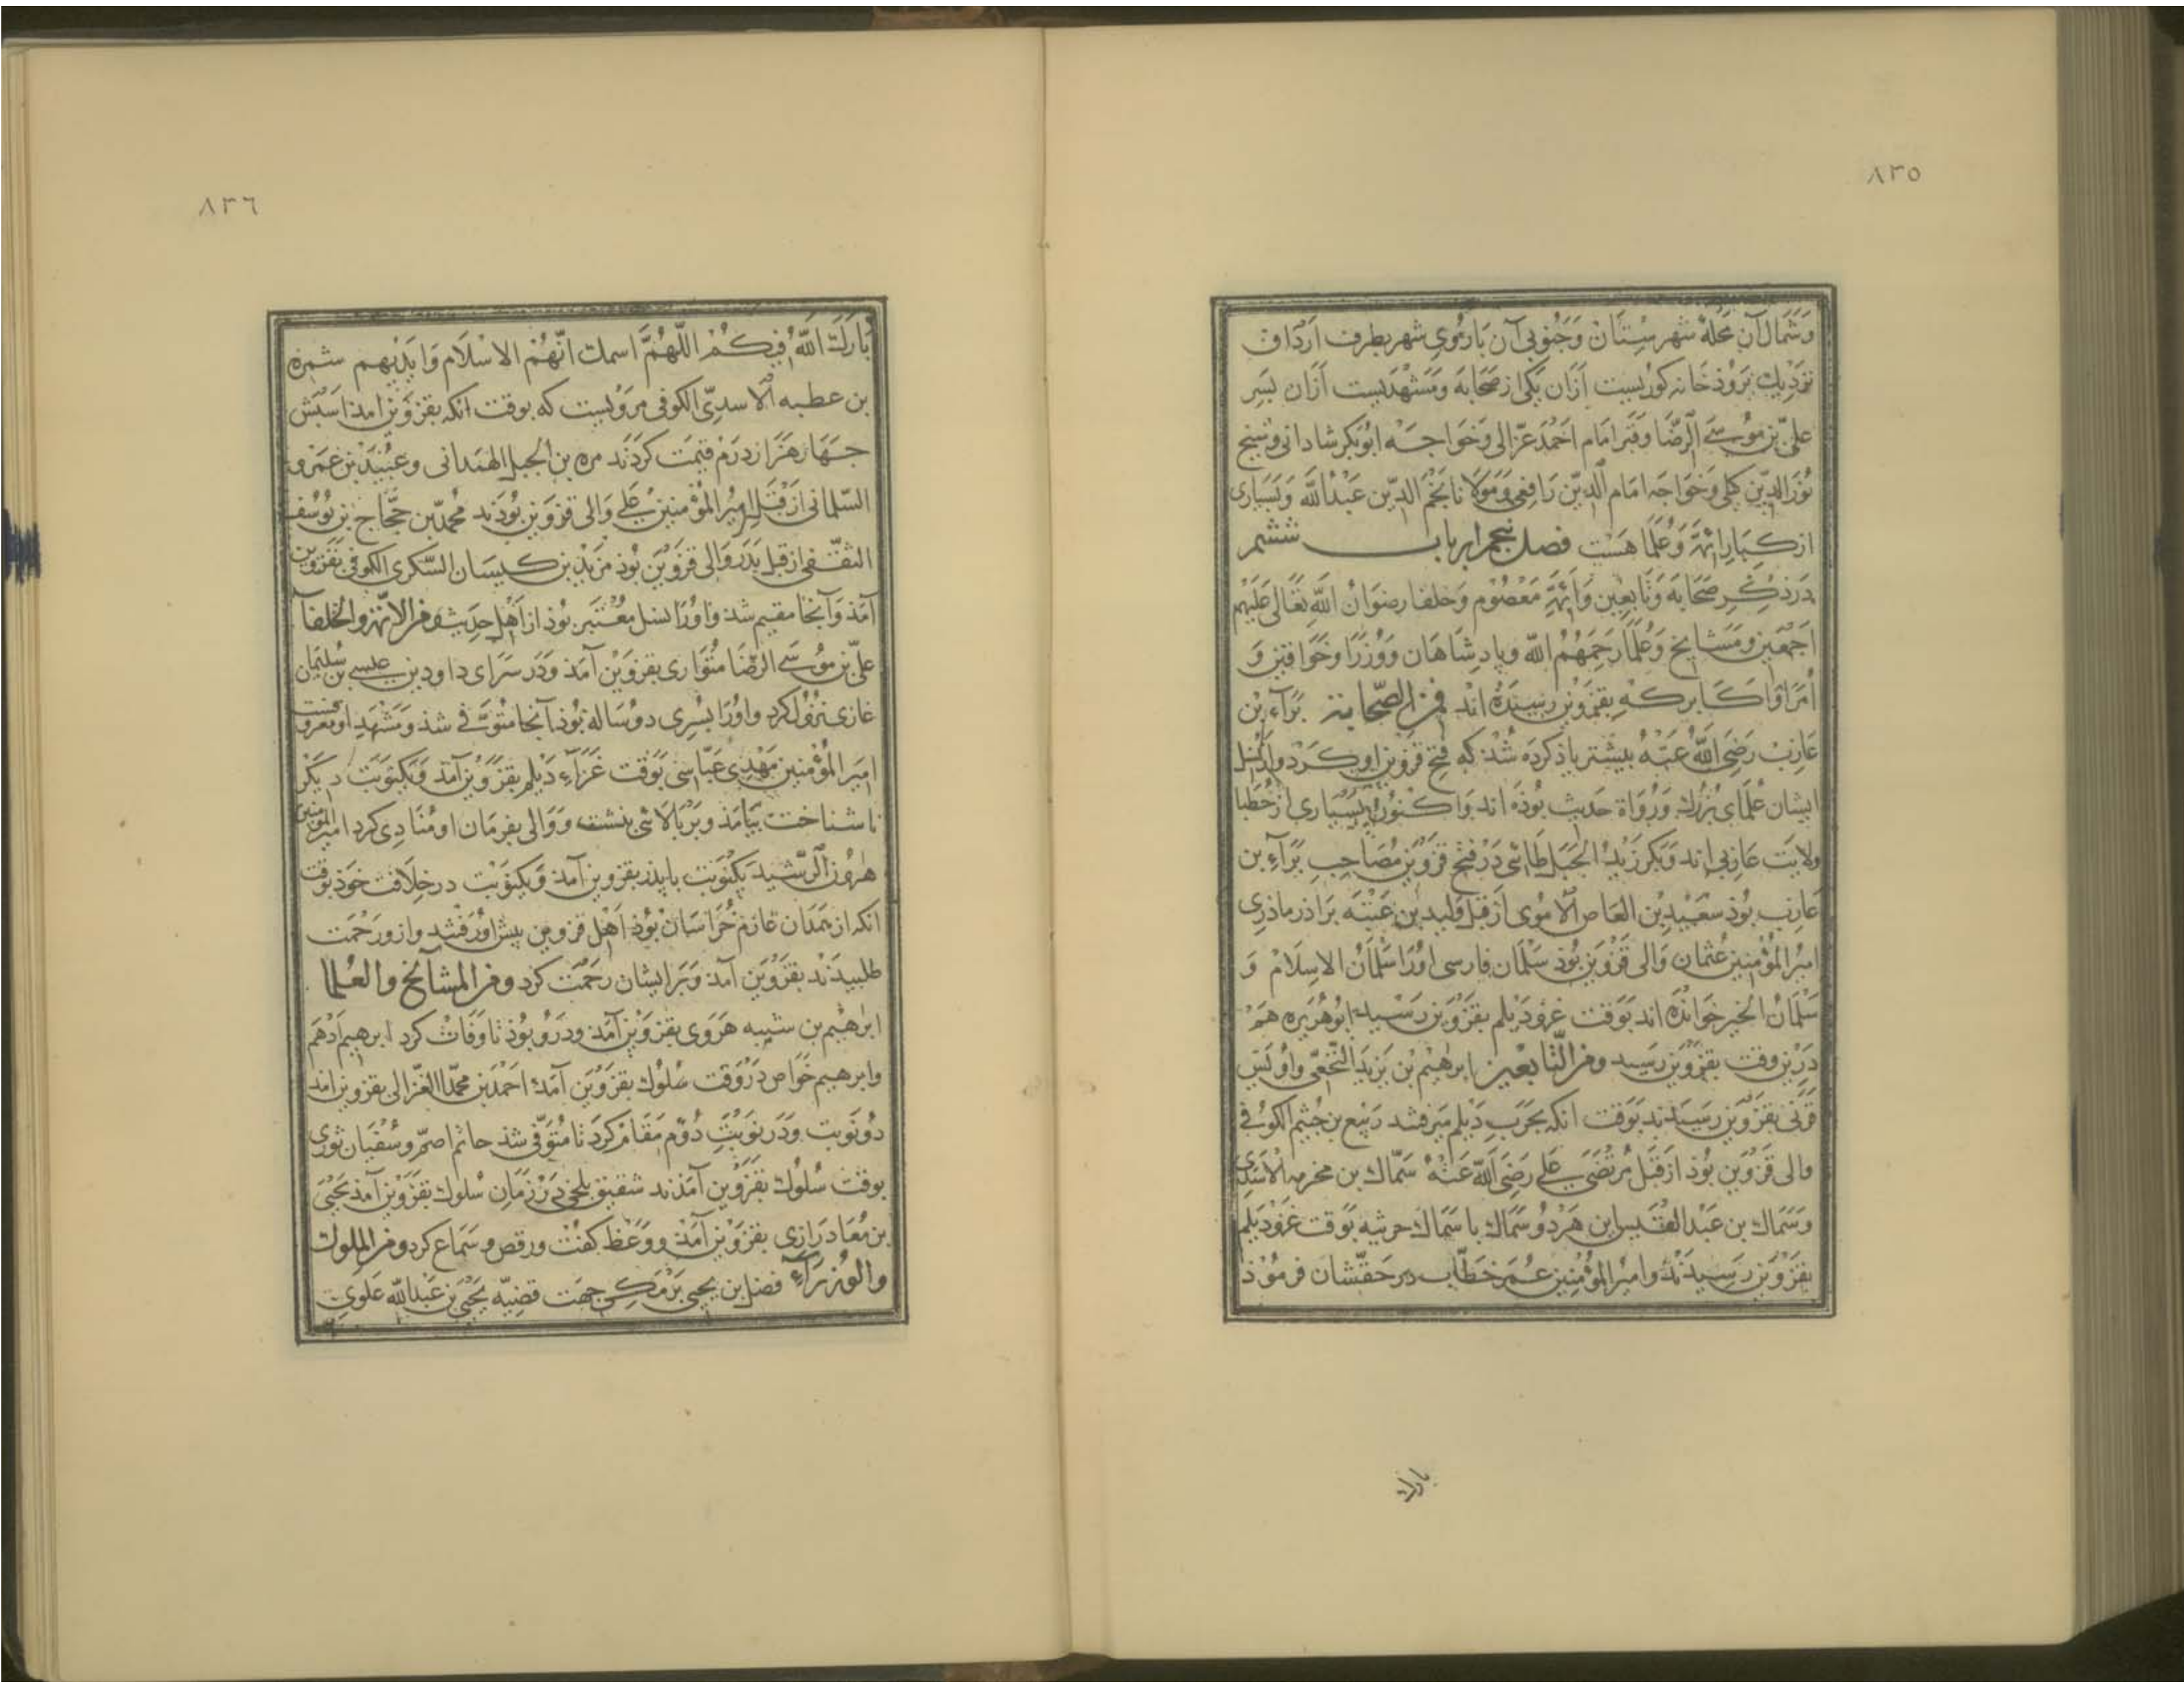 ٨٣٥
وَشمَال آن محلهٔ شهرسْتان وَجَنُوبی آن بَارُوی شهر بطرف اَرْدَاق
نزدِیك بَرُوذخَانه كوریست اَزَان یكی از صَحَابَه وَمَشهَدیست اَزَان بسَرِ
علیّ بن مُوسَی الرّضا وقبر امَام اَحْمَد غزّالی وَخَوَاجَه ابُوبَكر شاذانی وشیخ
نُورَالدِّین كیلی وَخَوَاجَه امَام الدِّین رَافعی وَمَولَانا نجْمُ الدِّین عَبْدُ اللّه وَبسیَاری
از كِبَار ائمَّه وَعُلَمَا هَسْت فصل پنجم از باب ششم
دَرذكْرِ صَحَابَه وَتَابعِین وَاَئِمَّهٔ مَعْصُوم وَخلفا رضوَانُ اللّه تعَالی عَلَیْهِم
اَجْمَعِین وَمَشَایخ وَعُلمَا رَحِمَهُمُ اللّه وپادِشَاهَان وَوُزَرَا وخَوَاقین وَ
اُمَرَا وَاَكَابر كه بقزوین رَسِیدَه اند فمن الصّحابة بَرَآء بْن
عَازِبْ رَضیَ اللّهُ عَنْهُ بیشتر یاذ كردَه شُذ كه فتح قزوین او كَرد وازنسل
ایشان عُلمَای بُزرك وَرُوَاة حَدیث بُوذَه اند وَاكنُون بسیَاری از خُطبَا
ولایَت عَازبی اند وَبكر زَیْدُ الجَبَل طَائی دَر فتح قزوین مُصَاحِب بَرَآء بن
عَازب بُوذ سَعِیْد بْن العَاص الاُمَوی اَز قبل وَلید بن عَتبَه بَرَاذر ماذری
امیرُ المُؤْمِنین عُثمَان وَالی قزوین بُوذ سَلمَان فارسی اورَا سَلمَانُ الاسِلَام وَ
سَلْمَانُ الخیر خوَاندَه اند بَوَقت غزو دَیلم بقزوین رَسیْد ابُوهُرَیْرَه هَمْ
دَرین وقت بقزوین رَسید ومن التّابعین ابرهِیْم بْن یَزِیدَ النَّخَعی وَاوُیَس
قرَنی بقزوین رَسیدَند بَوَقت انكه بحَرَب دَیلم میرفتند رَبیع بن خُثیم الكوُفی
والی قزوین بُوذ از قبل مُرتضَی عَلی رَضِیَ اللّه عَنْهُ سَمّاك بن مخرمه الاَسَدِی
وَسَمَاك بن عَبْد القیس این هَردُو سَمَاك با سَمَاك حرشه بَوَقت غزو دَیلم
بقزوین رَسیدَنْد وامیرُ المُؤْمِنین عُمَر خَطّاب در حَقشان فرمُوذ
بارك
٨٣٦
بَارَكَ اللّهُ فِیكُمْ اللّهُمَّ اسمك انّهُمْ الاسْلَام وَایّدْبِهِم شمره
بن عطیه الاسدِیّ الكوفی مروُیست كه بوقت انكه بقزوین امذ اسبَش
چهَار هَزَار دِرَم قیمَت كردَند مره بن الجبل الهَمَدانی وعُبَیْدَه بن عَمْرو
السّلمانی اَز قبَل امیرُ المُؤْمِنین عَلی وَالی قزوین بُوذند محُمَّد بن حَجّاج بن یُوسُف
الثقفی از قبل پدَر وَالی قزوین بُوذ مَزیَد بن كیسَان السّكری الكوفی بقزوین
آمَذ وَآنجَا مقیم شذ وَاورَا نسل معْتَبر بُوذ از اَهْل حَدِیث ومن الائمّة والخلفآ
علیّ بن موُسَی الرّضَا مُتوَاری بقزوین آمَذ وَدَر سَرَای داود بن عیسی بن سُلیمَان
غازی نزُول كرد واورَا پسَری دوُسَاله بُوذ آنجَا متُوَفّی شذ وَمَشْهَد او معروفست
امیرَ المُؤْمنین مَهْدی عَبّاسی بوَقت غَزَآء دَیلم بقزوین آمذ وَیكنوُبَت دیكَر
ناشناخت بیَامَذ وبَربَالائی بنشست وَوَالی بفرمَان او مُنَادِی كرد امیرُ المؤمنین
هٰرُون الرَّشِید یكنوُبَت باپذر بقزوین آمذ وَیكنوَبَت درخِلَافت خوَذ بوَقت
انكه از همَدَان عَازم خُرَاسَان بُوذ اَهْل قزوین پیش اورَفتند وازو رَحْمَت
طلبیدَند بقزوین آمذ وَبَر ایشان رَحْمَت كرد ومن المشآئخ والعُلما
ابرٰهیم بن شیبه هَرَوی بقزوین آمَذ ودَرو بُوذ تا وَفَات كرد ابرهیم اَدْهَم
وابرهیم خوَاص دَر وقت سُلوُك بقزوین آمَذ احْمَد بن محُمّد الغزّالی بقزوین آمذ
دُونَوبت وَدَر نَوبَتِ دُوّم مَقَام كرَد تا مُتوَفّی شذ حاتم اصمّ وسُفیَان ثوری
بوقت سُلوُك بقزوین آمَذند شقیق بلخی دَر زمَان سُلوُك بقزوین آمَذ یَحْییَ
بن مُعَاد رَازی بقزوین آمَذ وَوَعظ كفْت ورَقص وسَمَاع كرد ومن الملوك
والوُزرَآءِ فضل بن یحیی بَرمَكی جهَت قضِیّه یَحْیَی بن عَبْداللّه عَلوِی